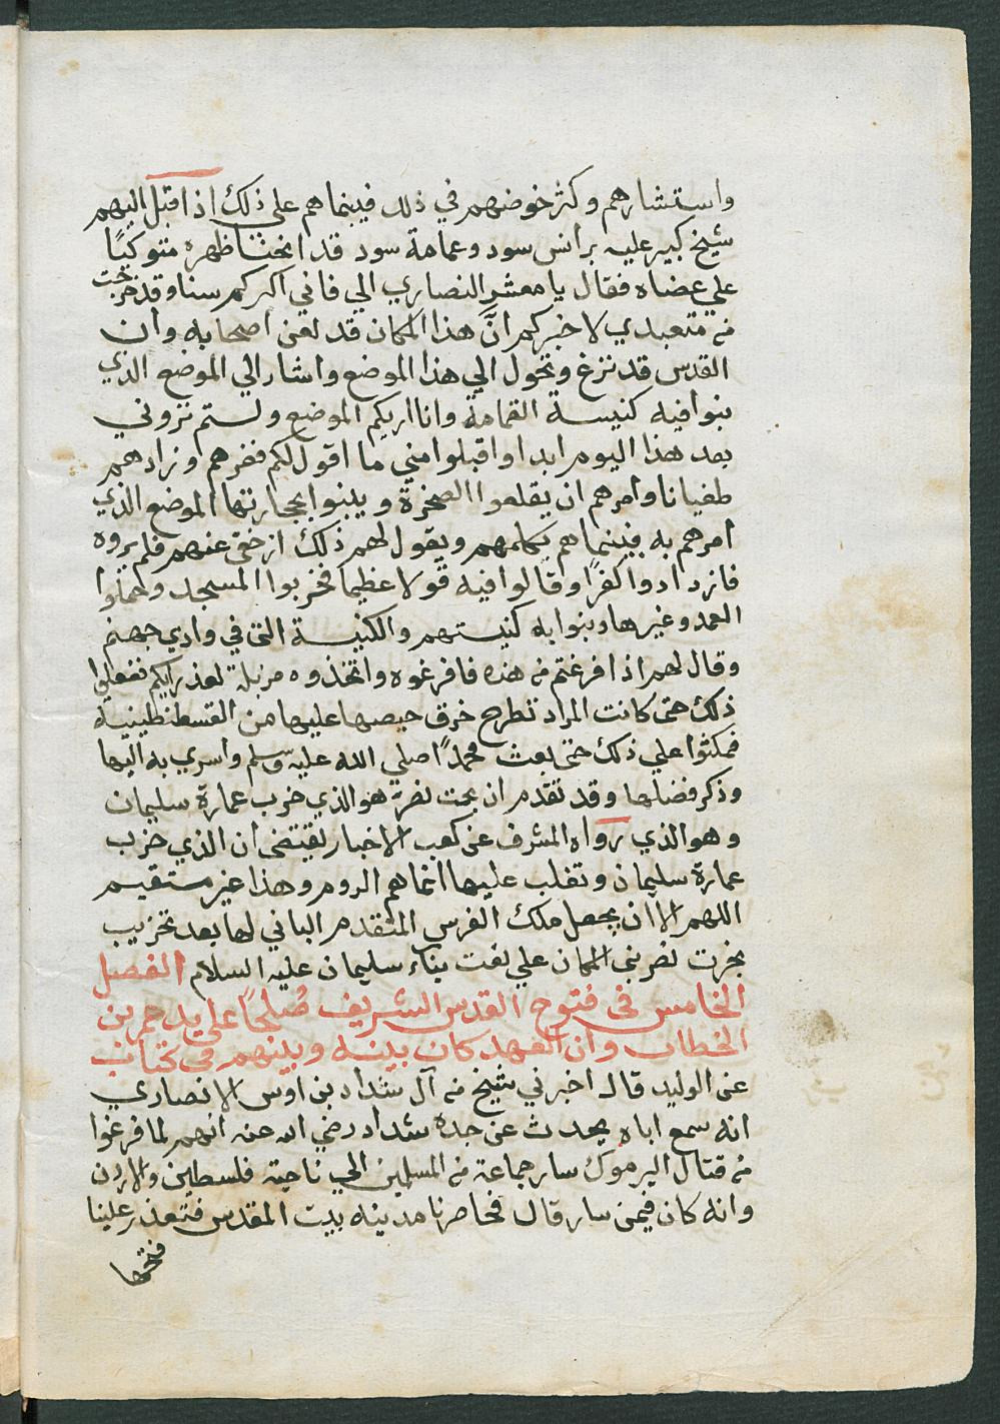 واستشارهم وكثر خوضهم في ذلك فبينما هم على ذلك اذ اقبل اليهم
شيخ كبير عليه برانس سود وعمامة سود قد انحنا ظهره متوكيًا
علي عضاه فقال يا معشر النصاري الي فاني اكبركم سنا وقد خرجت
من متعبدي لاخبركم انَّ هذا المكان قد لعن اصحابه وان
القدس قد نزغ وتحول الي هذا الموضع واشار الي الموضع الذي
بنوا فيه كنيسة القمامة وانا اريكم الموضع ولستم تروني
بعد هذا اليوم ابدا واقبلوا مني ما اقول لكم فغرهم وزادهم
طغيانا وامرهم ان يقلعوا الصخرة ويبنوا بحجارتها الموضع الذي
امرهم به فبينما هم يكلمهم ويقول لهم ذلك از خفى عنهم فلم يروه
فازدادوا كفرًا وقالوا فيه قولا عظيما فخربوا المسجد وحملوا
العمد وغيرها وبنوا به كنيستهم والكنيسة التى في وادي جهنم
وقال لهم اذا فرغتم من هذه فافرغوه واتخذوه مزبلة لعذرايكم ففعلوا
ذلك حتى كانت المراة تطرح خرق حيضها عليها من القسطنطينية
فمكثوا علي ذلك حتى بعث محمدًا صلي الله عليه وسلم واسري به اليها
وذكر فضلها وقد تقدم ان بخت نضر هو الذي خرب عمارة سليمان
وهو الذي رواه المشرف عن كعب الاخبار يقتضى ان الذي خرب
عمارة سليمان وتغلب عليها انما هم الروم وهذا غير مستقيم
اللهم الا ان يجعل ملك الفرس المتقدم الباني لها بعد تخريب
بخت نضر بنى المكان علي نعت بناء سليمان عليه السلام الفصل
الخامس فى فتوح القدس الشريف صُلحًا على يد عمر بن
الخطاب وان العهد كان بينه وبينهم فى كتاب
عن الوليد قال اخبرني شيخ من آل شداد بن اوس الانصاري
انه سمع اباه يحدث عن جده شداد رضي الله عنه انهم لما فرغوا
من قتال اليرموك سار جماعة من المسلمين الي ناحية فلسطين والاردن
وانه كان فيمن سار قال فحاصرنا مدينه بيت المقدس فتعذر علينا
فتحها